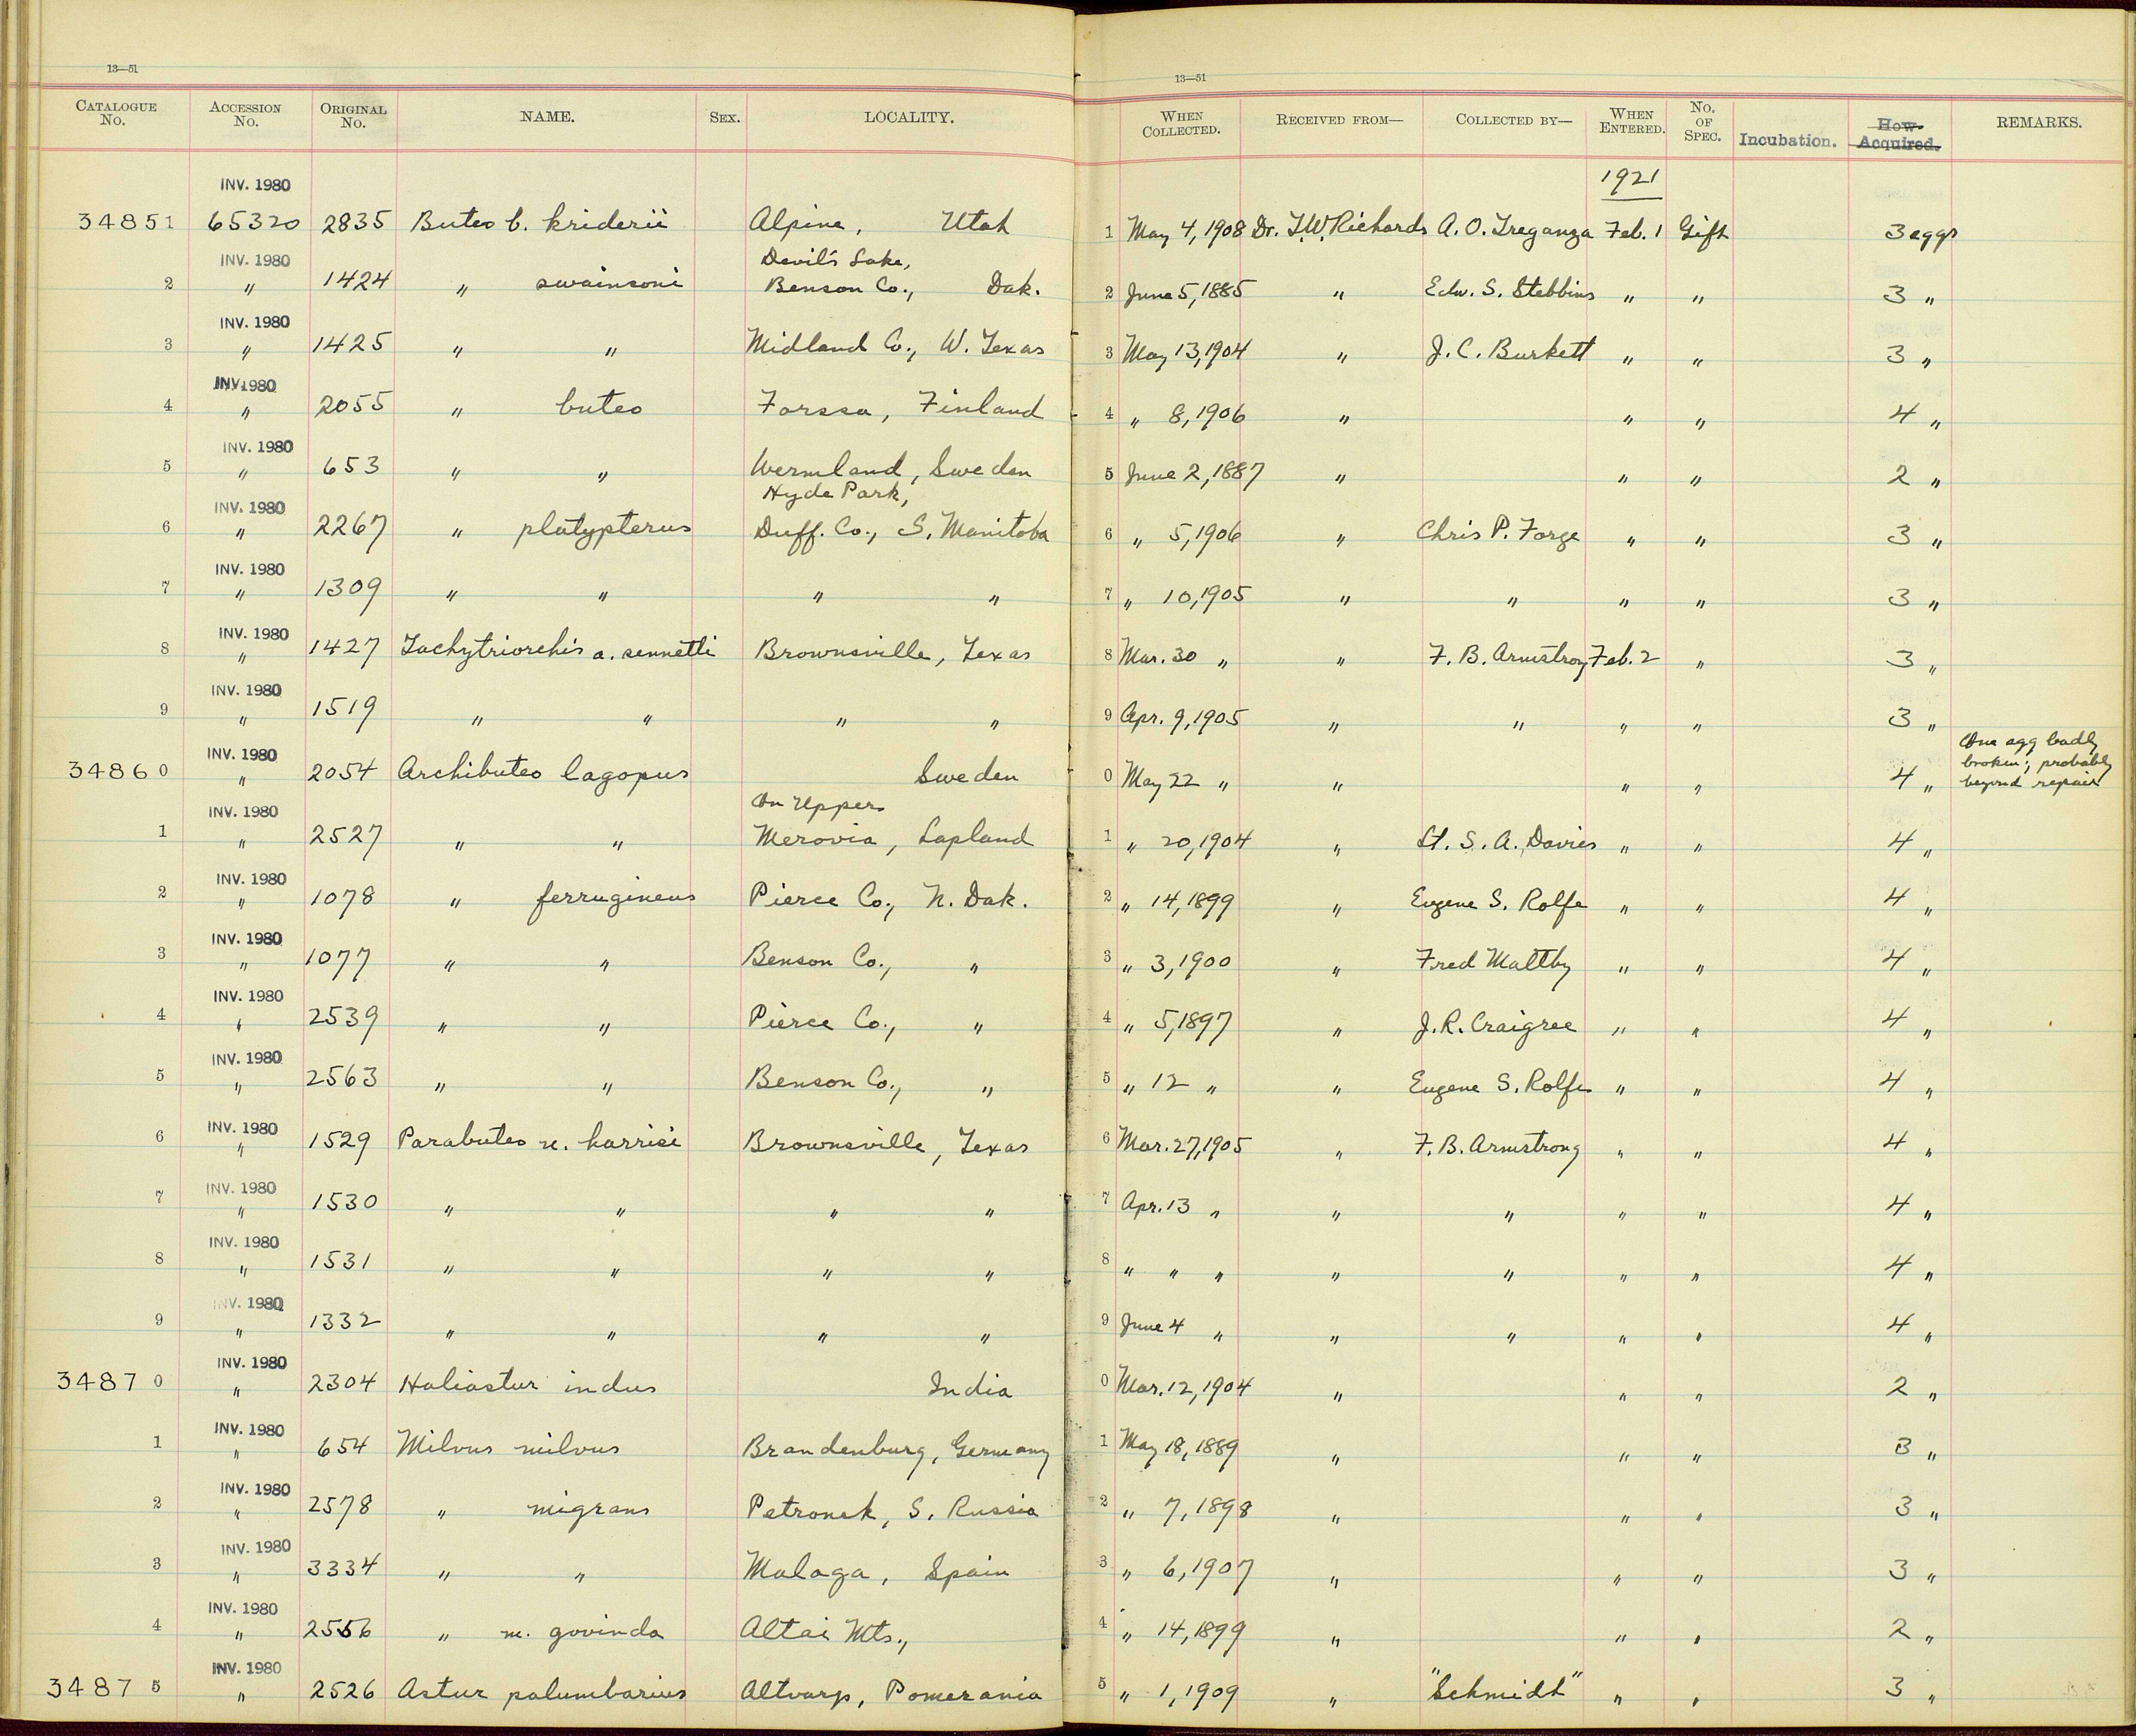 13—51
13—51
CATALOGUE No. ACCESSION No. ORIGINAL No. NAME. SEX. LOCALITY. WHEN COLLECTED. RECEIVED FROM— COLLECTED BY— WHEN ENTERED. No. OF SPEC. Incubation. How Acquired. REMARKS.
1921
INV. 1980
34851 65320 2835 Buteo b. kriderii Alpine, Utah 1 May 4, 1908 Dr. T.W. Richards A. O. Treganza Feb. 1 Gift 3 eggs
INV. 1980 Devil's Lake,
2 " 1424 " swainsoni Benson Co., Dak. 2 June 5, 1885 " Edw. S. Stebbins " " 3 "
INV. 1980
3 " 1425 " " Midland Co., W. Texas 3 May 13, 1904 " J. C. Burkett " " 3 "
INV. 1980
4 " 2055 " buteo Forssa, Finland 4 " 8, 1906 " " " 4 "
INV. 1980
5 " 653 " " Wermland, Sweden 5 June 2, 1887 " " " 2 "
INV. 1980 Hyde Park,
6 " 2267 " platypterus Duff. Co., S. Manitoba 6 " 5, 1906 " Chris P. Forge " " 3 "
INV. 1980
7 " 1309 " " " " 7 " 10, 1905 " " " " 3 "
INV. 1980
8 " 1427 Tachytriorchis a. sennetti Brownsville, Texas 8 Mar. 30 " " F. B. Armstrong Feb. 2 " 3 "
INV. 1980
9 " 1519 " " " " 9 Apr. 9, 1905 " " " " 3 "
INV. 1980 One egg badly broken; probably
34860 " 2054 Archibuteo lagopus Sweden 0 May 22 " " " " 4 " beyond repair
INV. 1980 On Upper
1 " 2527 " " Merovia, Lapland 1 " 20, 1904 " Lt. S. A. Davies " " 4 "
INV. 1980
2 " 1078 " ferrugineus Pierce Co., N. Dak. 2 " 14, 1899 " Eugene S. Rolfe " " 4 "
INV. 1980
3 " 1077 " " Benson Co., " 3 " 3, 1900 " Fred Maltby " " 4 "
INV. 1980
4 " 2539 " " Pierce Co., " 4 " 5, 1897 " J. R. Craigree " " 4 "
INV. 1980
5 " 2563 " " Benson Co., " 5 " 12 " " Eugene S. Rolfe " " 4 "
INV. 1980
6 " 1529 Parabuteo u. harrisi Brownsville, Texas 6 Mar. 27, 1905 " F. B. Armstrong " " 4 "
INV. 1980
7 " 1530 " " " " 7 Apr. 13 " " " " " 4 "
INV. 1980
8 " 1531 " " " " 8 " " " " " " " 4 "
INV. 1980
9 " 1332 " " " " 9 June 4 " " " " " 4 "
INV. 1980
34870 " 2304 Haliastur indus India 0 Mar. 12, 1904 " " " 2 "
INV. 1980
1 " 654 Milvus milvus Brandenburg, Germany 1 May 18, 1889 " " " 3 "
INV. 1980
2 " 2578 " migrans Petronsk, S. Russia 2 " 7, 1898 " " " 3 "
INV. 1980
3 " 3334 " " Malaga, Spain 3 " 6, 1907 " " " 3 "
INV. 1980
4 " 2556 " m. govinda Altai Mts., 4 " 14, 1899 " " " 2 "
INV. 1980
34875 " 2526 Astur palumbarius Altvarp, Pomerania 5 " 1, 1909 " "Schmidt" " " 3 "